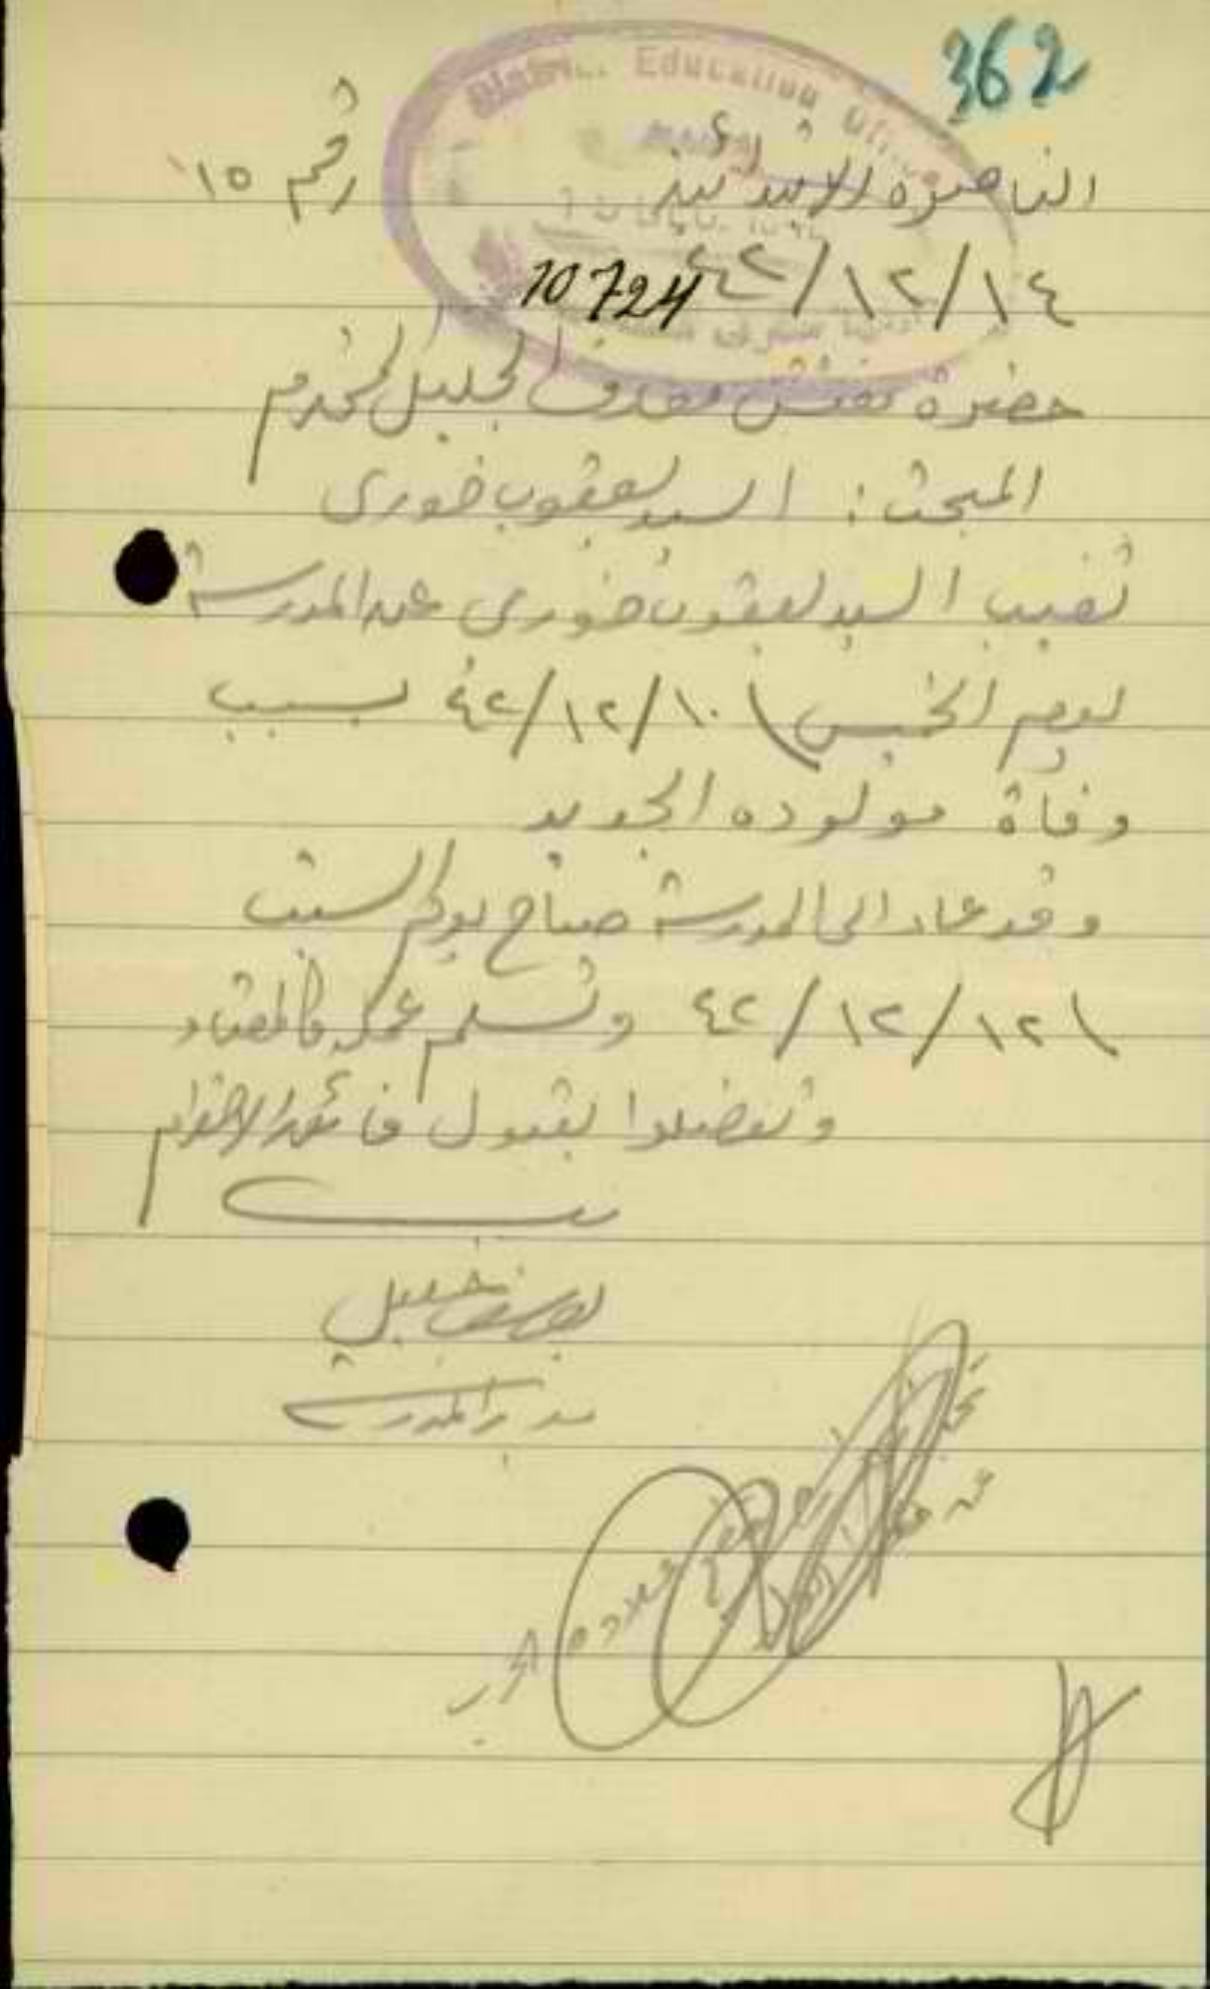 362
District Education
الناصرة الابتدائية
رقم ١٥
٤٢/١٢/١٤
10724
حضرة مفتش معارف الجليل المحترم
المبحث: السيد يعقوب خوري
تغيب السيد يعقوب خوري عن المدرسة
يوم الخميس ٤٢/١٢/١٠ بسبب
وفاة مولوده الجديد
وقد عاد الى المدرسة صباح يوم السبت
٤٢/١٢/١٢ وتسلم عمله كالمعتاد
وتفضلوا بقبول فائق الاحترام
يوسف خليل
مدير المدرسة